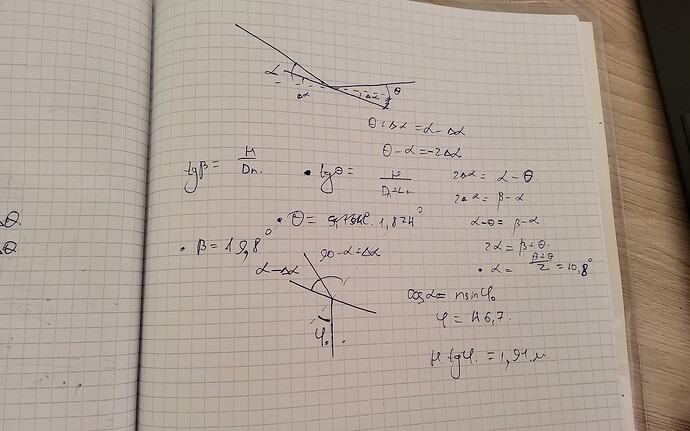 α
Δα
Δα
θ
θ+Δα = α - Δα
θ - α = -2Δα
tgβ = H/Dn.
• tgθ = H/Dn+Ln
2Δα = α - θ
2Δα = β - α
α-θ = β-α
2α = β+θ.
• α = β+θ/2 = 10,8°
• θ = 1,874°
• β = 19,8°
90-α+Δα
α-Δα
φ.
cosα = nsinφ₀
φ = 46,7.
H tgφ. = 1,91 м.
Δθ
Δθ